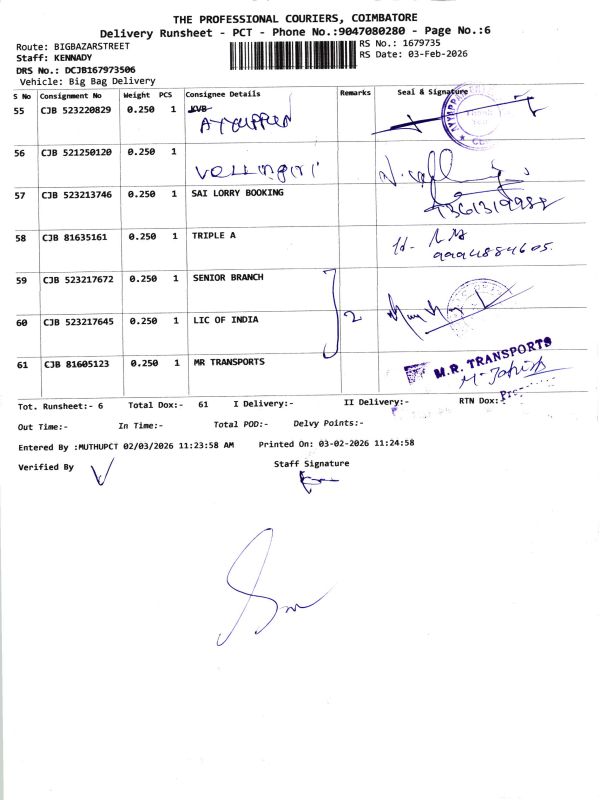 THE PROFESSIONAL COURIERS, COIMBATORE
Delivery Runsheet - PCT - Phone No.:9047080280 - Page No.:6
Route: BIGBAZARSTREET
RS No.: 1679735
Staff: KENNADY
RS Date: 03-Feb-2026
DRS No.: DCJB167973506
Vehicle: Big Bag Delivery
S No Consignment No Weight PCS Consignee Details Remarks Seal & Signature
55 CJB 523220829 0.250 1 KVB
56 CJB 521250120 0.250 1
Vellingiri
57 CJB 523213746 0.250 1 SAI LORRY BOOKING
58 CJB 81635161 0.250 1 TRIPLE A
59 CJB 523217672 0.250 1 SENIOR BRANCH
2
60 CJB 523217645 0.250 1 LIC OF INDIA
61 CJB 81605123 0.250 1 MR TRANSPORTS
M.R. TRANSPORTS
Tot. Runsheet:- 6 Total Dox:- 61 I Delivery:- II Delivery:- RTN Dox:-
Out Time:- In Time:- Total POD:- Delvy Points:-
Entered By :MUTHUPCT 02/03/2026 11:23:58 AM Printed On: 03-02-2026 11:24:58
Verified By Staff Signature